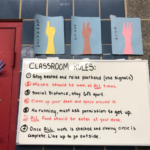 CLASSROOM RULES:
① Stay seated and raise your hand (use signals)
② Masks should be worn at ALL times.
③ Social Distance, stay 6ft apart.
④ Clean up your desk and space around it.
⑤ No running, must ask permission to get up.
⑥ ALL food should be eaten at your desk.
⑦ Once ALL work is checked and closing circle is
complete Line up to go outside.